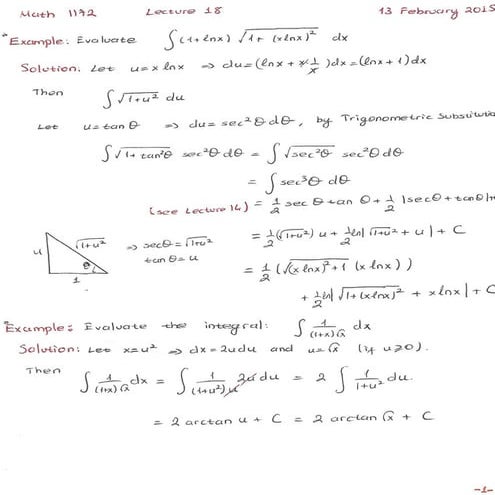 Math 1172 Lecture 18 13 February 2015
*Example: Evaluate ∫(1+lnx) √(1+(xlnx)²) dx
Solution: Let u=x lnx ⇒ du=(lnx + x·1/x)dx=(lnx+1)dx
Then ∫√(1+u²) du
Let u=tan θ ⇒ du=sec²θ dθ, by Trigonometric Substitutio
∫√(1+tan²θ) sec²θ dθ = ∫√(sec²θ) sec²θ dθ
= ∫sec³θ dθ
(see Lecture 14) = 1/2 sec θ tan θ + 1/2 |secθ+tanθ|+
u √(1+u²) θ 1 ⇒ secθ=√(1+u²) tanθ=u
= 1/2(√(1+u²)) u + 1/2 ln|√(1+u²) + u| + C
= 1/2 (√((x lnx)²+1) (x lnx))
+ 1/2 ln|√(1+(xlnx)²) + x lnx| + C
*Example: Evaluate the integral: ∫ 1/((1+x)√x) dx
Solution: Let x=u² ⇒ dx=2udu and u=√x (if u≥0).
Then ∫ 1/((1+x)√x) dx = ∫ 1/((1+u²)u) 2u du = 2 ∫ 1/(1+u²) du.
= 2 arctan u + C = 2 arctan √x + C
-1-